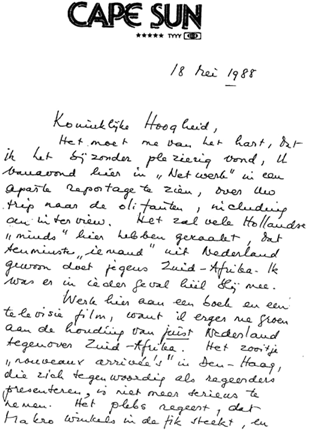 CAPE SUN
18 Mei 1988
Koninklijke Hoogheid,
Het moet me van het hart, dat
ik het bijzonder plezierig vond, U
vanavond hier in „Netwerk" in een
aparte reportage te zien, over Uw
trip naar de olifanten, including
een interview. Het zal vele Hollandse
„minds" hier hebben geraakt, dat
tenminste „iemand" uit Nederland
gewoon doet jegens Zuid-Afrika. Ik
was er in ieder geval heel blij mee.
Werk hier aan een boek en een
televisie film, want ik erger me groen
aan de houding van juist Nederland
tegenover Zuid-Afrika. Het zooitje
„nouveaux arrivée's" in Den-Haag,
die zich tegenwoordig als regeerders
presenteren, is niet meer serieus te
nemen. Het plebs regeert, dat
Makro winkels in de fik steekt, en